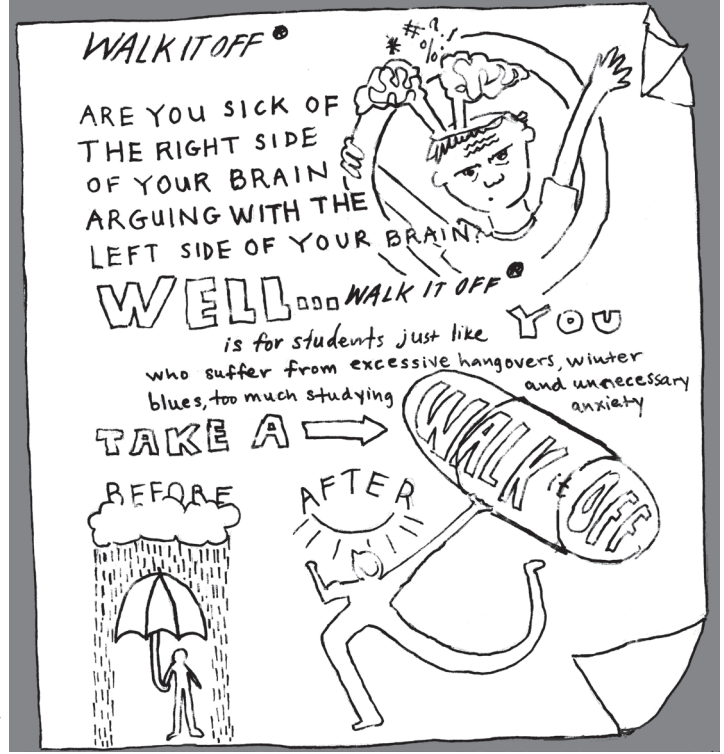 WALK IT OFF ®
*#%?!
ARE YOU SICK OF
THE RIGHT SIDE
OF YOUR BRAIN
ARGUING WITH THE
LEFT SIDE OF YOUR BRAIN?
WELL... WALK IT OFF ®
is for students just like YOU
who suffer from excessive hangovers, winter
blues, too much studying and unnecessary
anxiety
TAKE A
WALK it OFF
BEFORE
AFTER